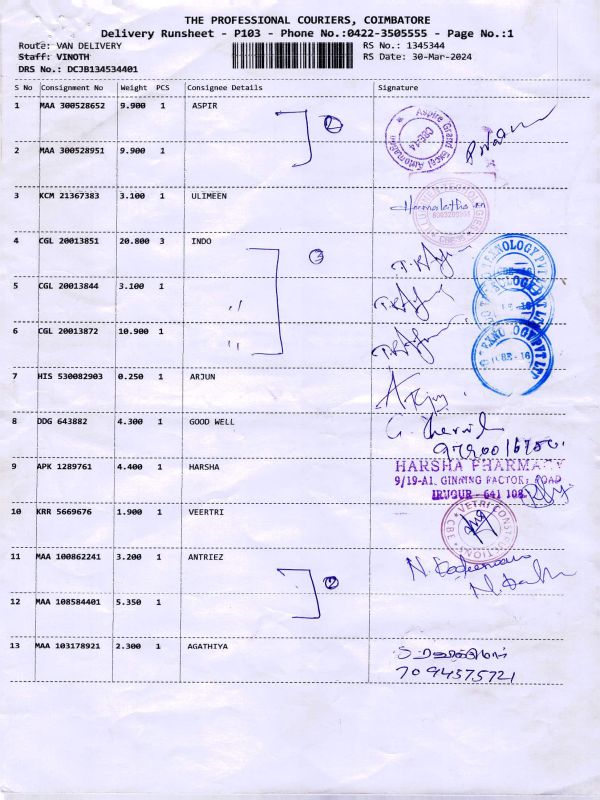 THE PROFESSIONAL COURIERS, COIMBATORE
Delivery Runsheet - P103 - Phone No.:0422-3505555 - Page No.:1
Route: VAN DELIVERY RS No.: 1345344
Staff: VINOTH RS Date: 30-Mar-2024
DRS No.: DCJB134534401
S No Consignment No Weight PCS Consignee Details Signature
1 MAA 300528652 9.900 1 ASPIR
2
2 MAA 300528951 9.900 1
3 KCM 21367383 3.100 1 ULIMEEN
Hemalatha
4 CGL 20013851 20.800 3 INDO
3
5 CGL 20013844 3.100 1
6 CGL 20013872 10.900 1
7 HIS 530082903 0.250 1 ARJUN
8 DDG 643882 4.300 1 GOOD WELL
9 APK 1289761 4.400 1 HARSHA
HARSHA PHARMACY
9/19-A1, GINNING FACTORY ROAD
IRUGUR - 641 103.
10 KRR 5669676 1.900 1 VEERTRI
11 MAA 100862241 3.200 1 ANTRIEZ
2
12 MAA 108584401 5.350 1
13 MAA 103178921 2.300 1 AGATHIYA
7094575721